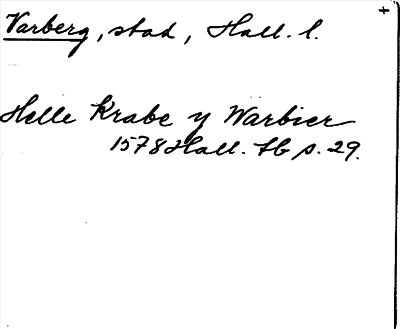 +
Varberg, stad, Hall. l.
Helle Krabe y Warbier
1578 Hall. tb s. 29.